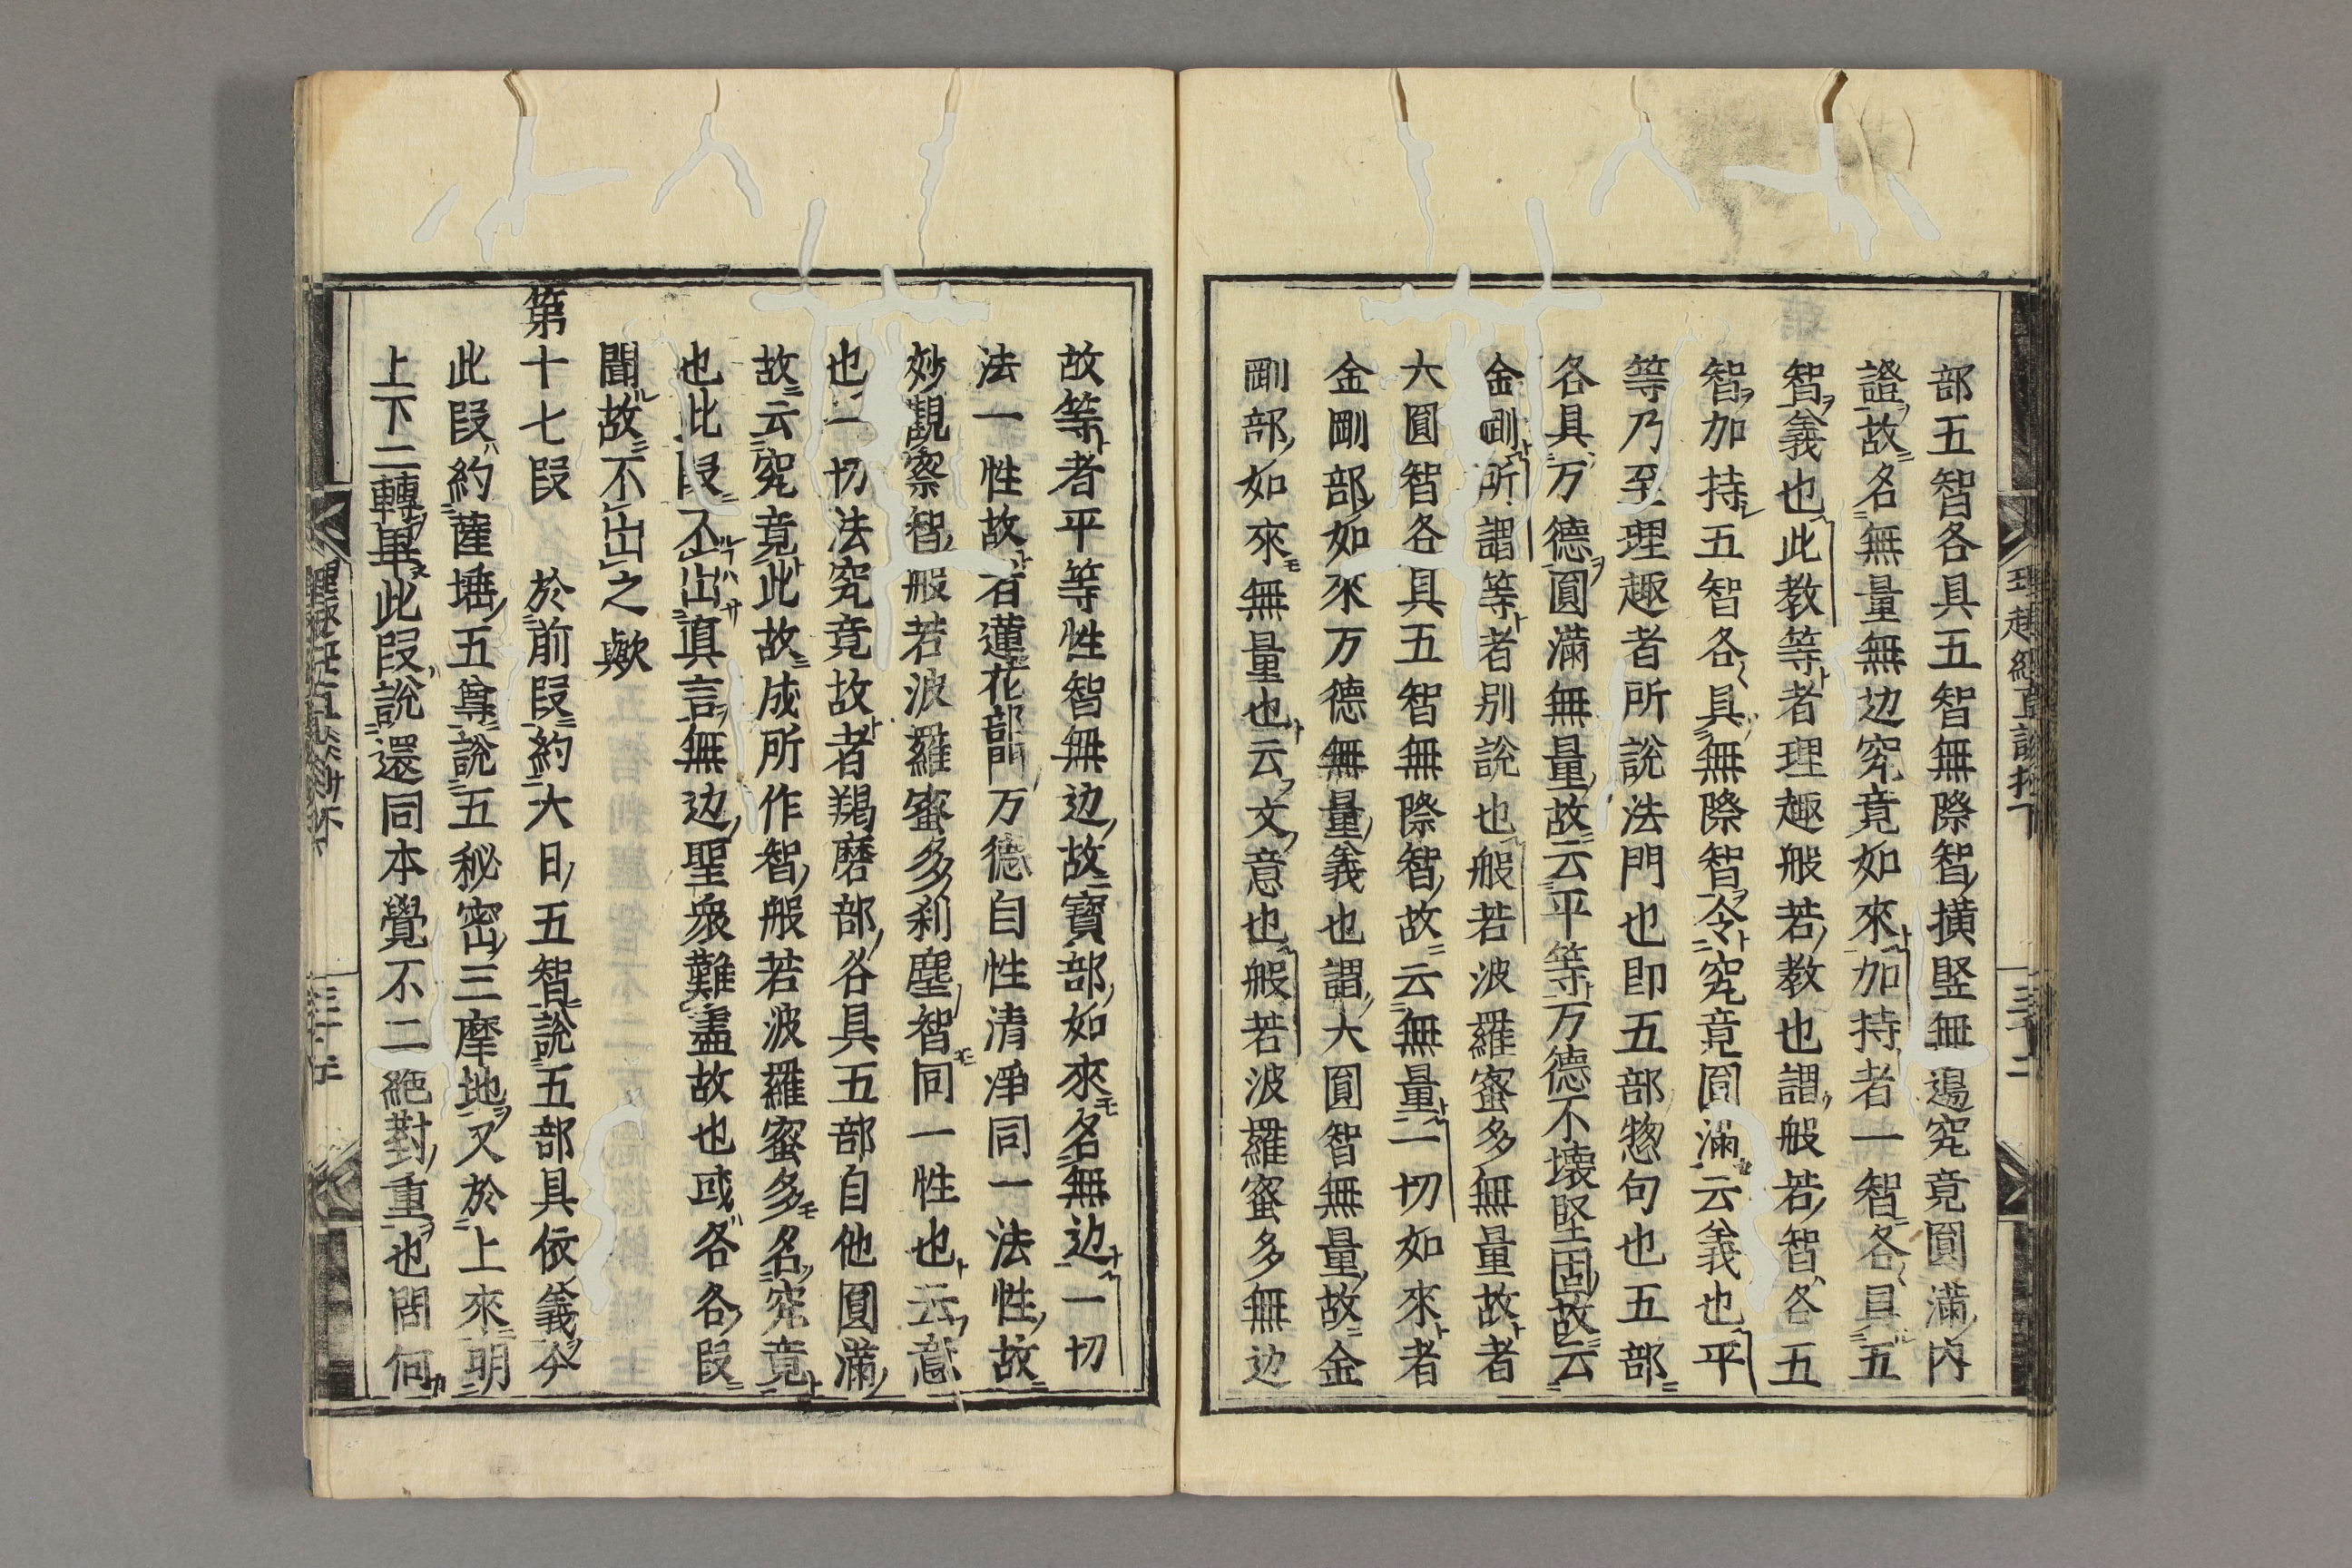 部五智各具五智無際智橫竪無邊究竟圓滿内
證故名無量無边究竟如來加持者一智各具五
智義也此教等者理趣般若教也謂般若智各五
智加持五智各具無際智令究竟圓滿云義也平
等乃至理趣者所説法門也即五部惣句也五部
各具万德圓滿無量故云平等万德不壊堅固故云
金剛所謂等者別説也般若波羅蜜多無量故者
大圓智各具五智無際智故云無量一切如來者
金剛部如來万德無量義也謂大圓智無量故金
剛部如來無量也云文意也般若波羅蜜多無边
理趣經直談抄下
三十二
故等者平等性智無边故寶部如來名無边一切
法一性故者蓮花部門万德自性清淨同一法性故
妙觀察智般若波羅蜜多刹塵智同一性也云意
也一切法究竟故者羯磨部各具五部自他圓滿
故云究竟此故成所作智般若波羅蜜多名究竟
也此段不出真言無边聖衆難盡故也或各各段
聞故不出之歟
第十七段 於前段約大日五智説五部具依義今
此段約薩埵五尊説五秘密三摩地又於上來明
上下二轉畢此段説還同本覺不二絶對重也問何